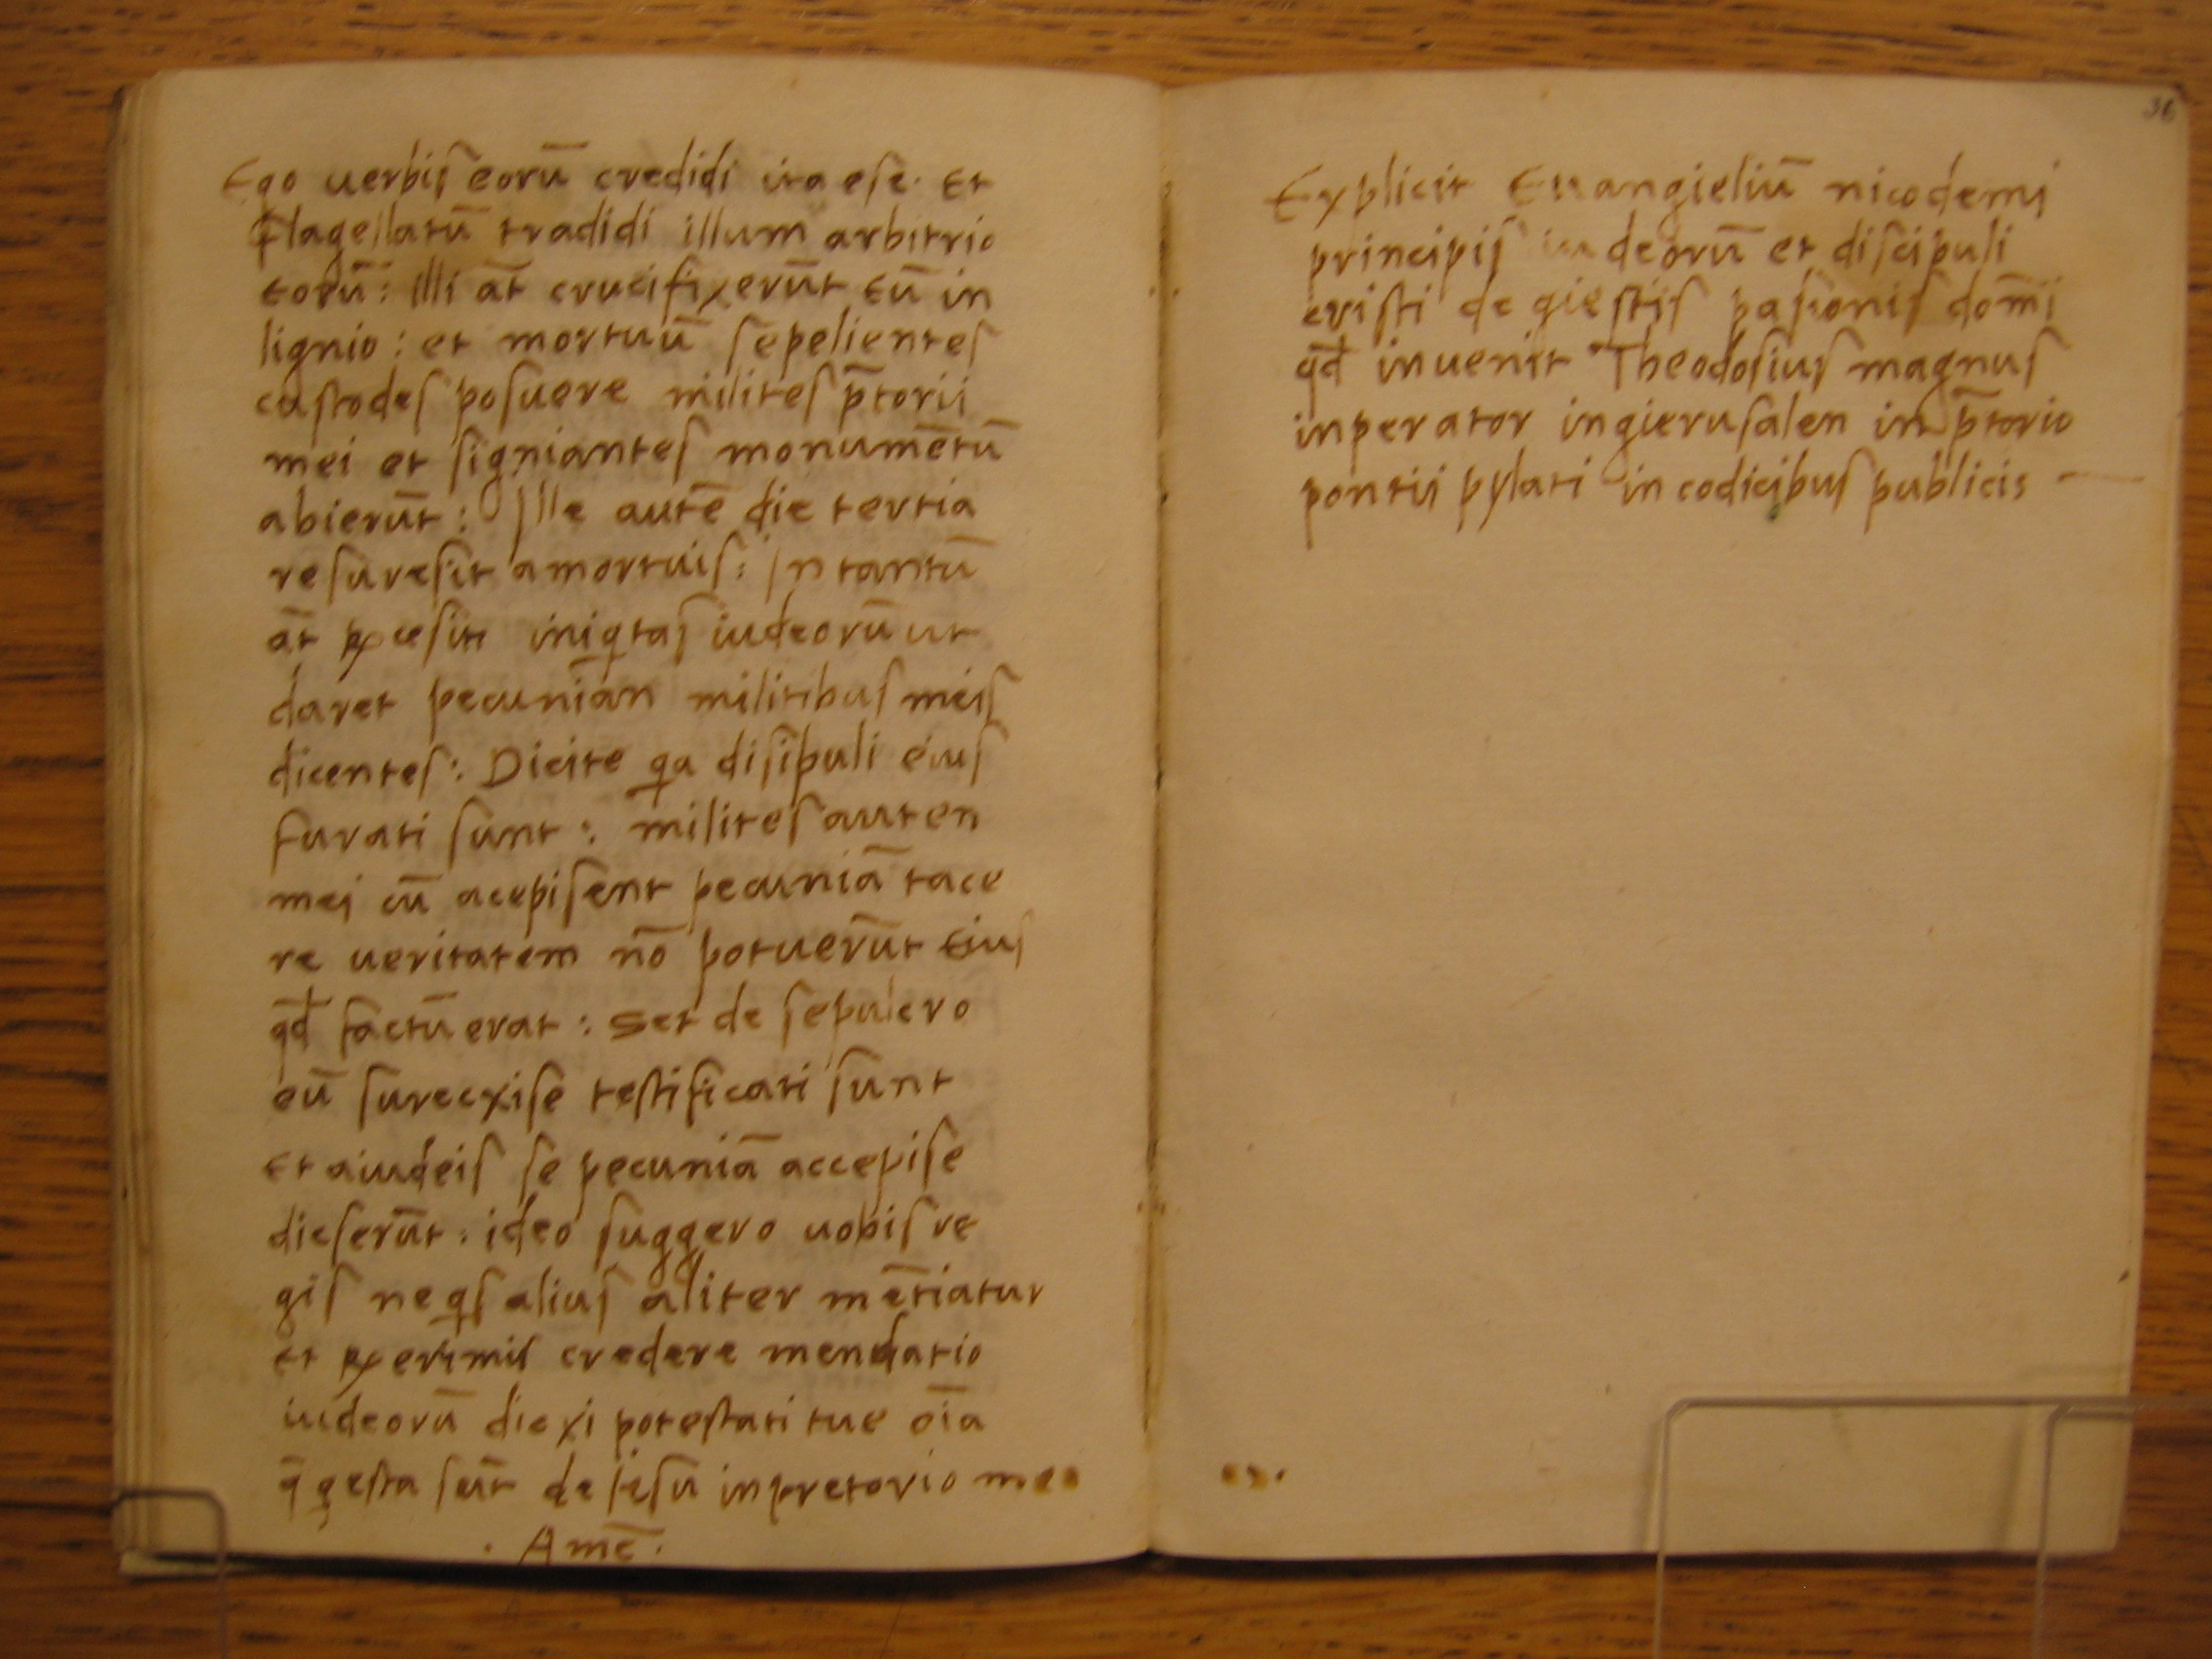 Ego uerbiſ eorū credidi ita eſe · Et
flagellatū tradidi illum arbitrio
eorū: illi āt crucifixerūt eū in
lignio: et mortuū ſepelienteſ
cuſtodeſ poſuere militeſ p̄torii
mei et ſignianteſ monumētū
abierūt: Ille autē die tertia
reſureſit amortuiſ: In tantū
āt iniqtaſ iudeorū ut
daret pecunian militibuſ meiſ
dicenteſ: Dicite qa diſipuli eiuſ
furati ſunt: militeſ auten
mei cū acepiſent pecuniā tace
re ueritatem nō potuerūt eiuſ
qd̄ factū erat: Set de ſepulcro
eū ſurecxiſe teſtificati ſunt
Et aiudeiſ ſe pecuniā accepiſe
dicſerūt: ideo ſuggero uobiſ re
giſ ne qſ aliuſ aliter mētiatur
et credere mendatio
iudeorū diexi poteſtati tue oīa
q̄ geſta ſūt de ieſu inpretorio meo
· Amē ·
36
Explicit Euangieliū nicodemi
principiſ iudeorū et diſcipuli
criſti de gieſtiſ paſioniſ dom̄i
qd̄ inuenit Theodoſiuſ magnuſ
inperator ingieruſalen in p̄torio
pontii pylati in codicibuſ publicis